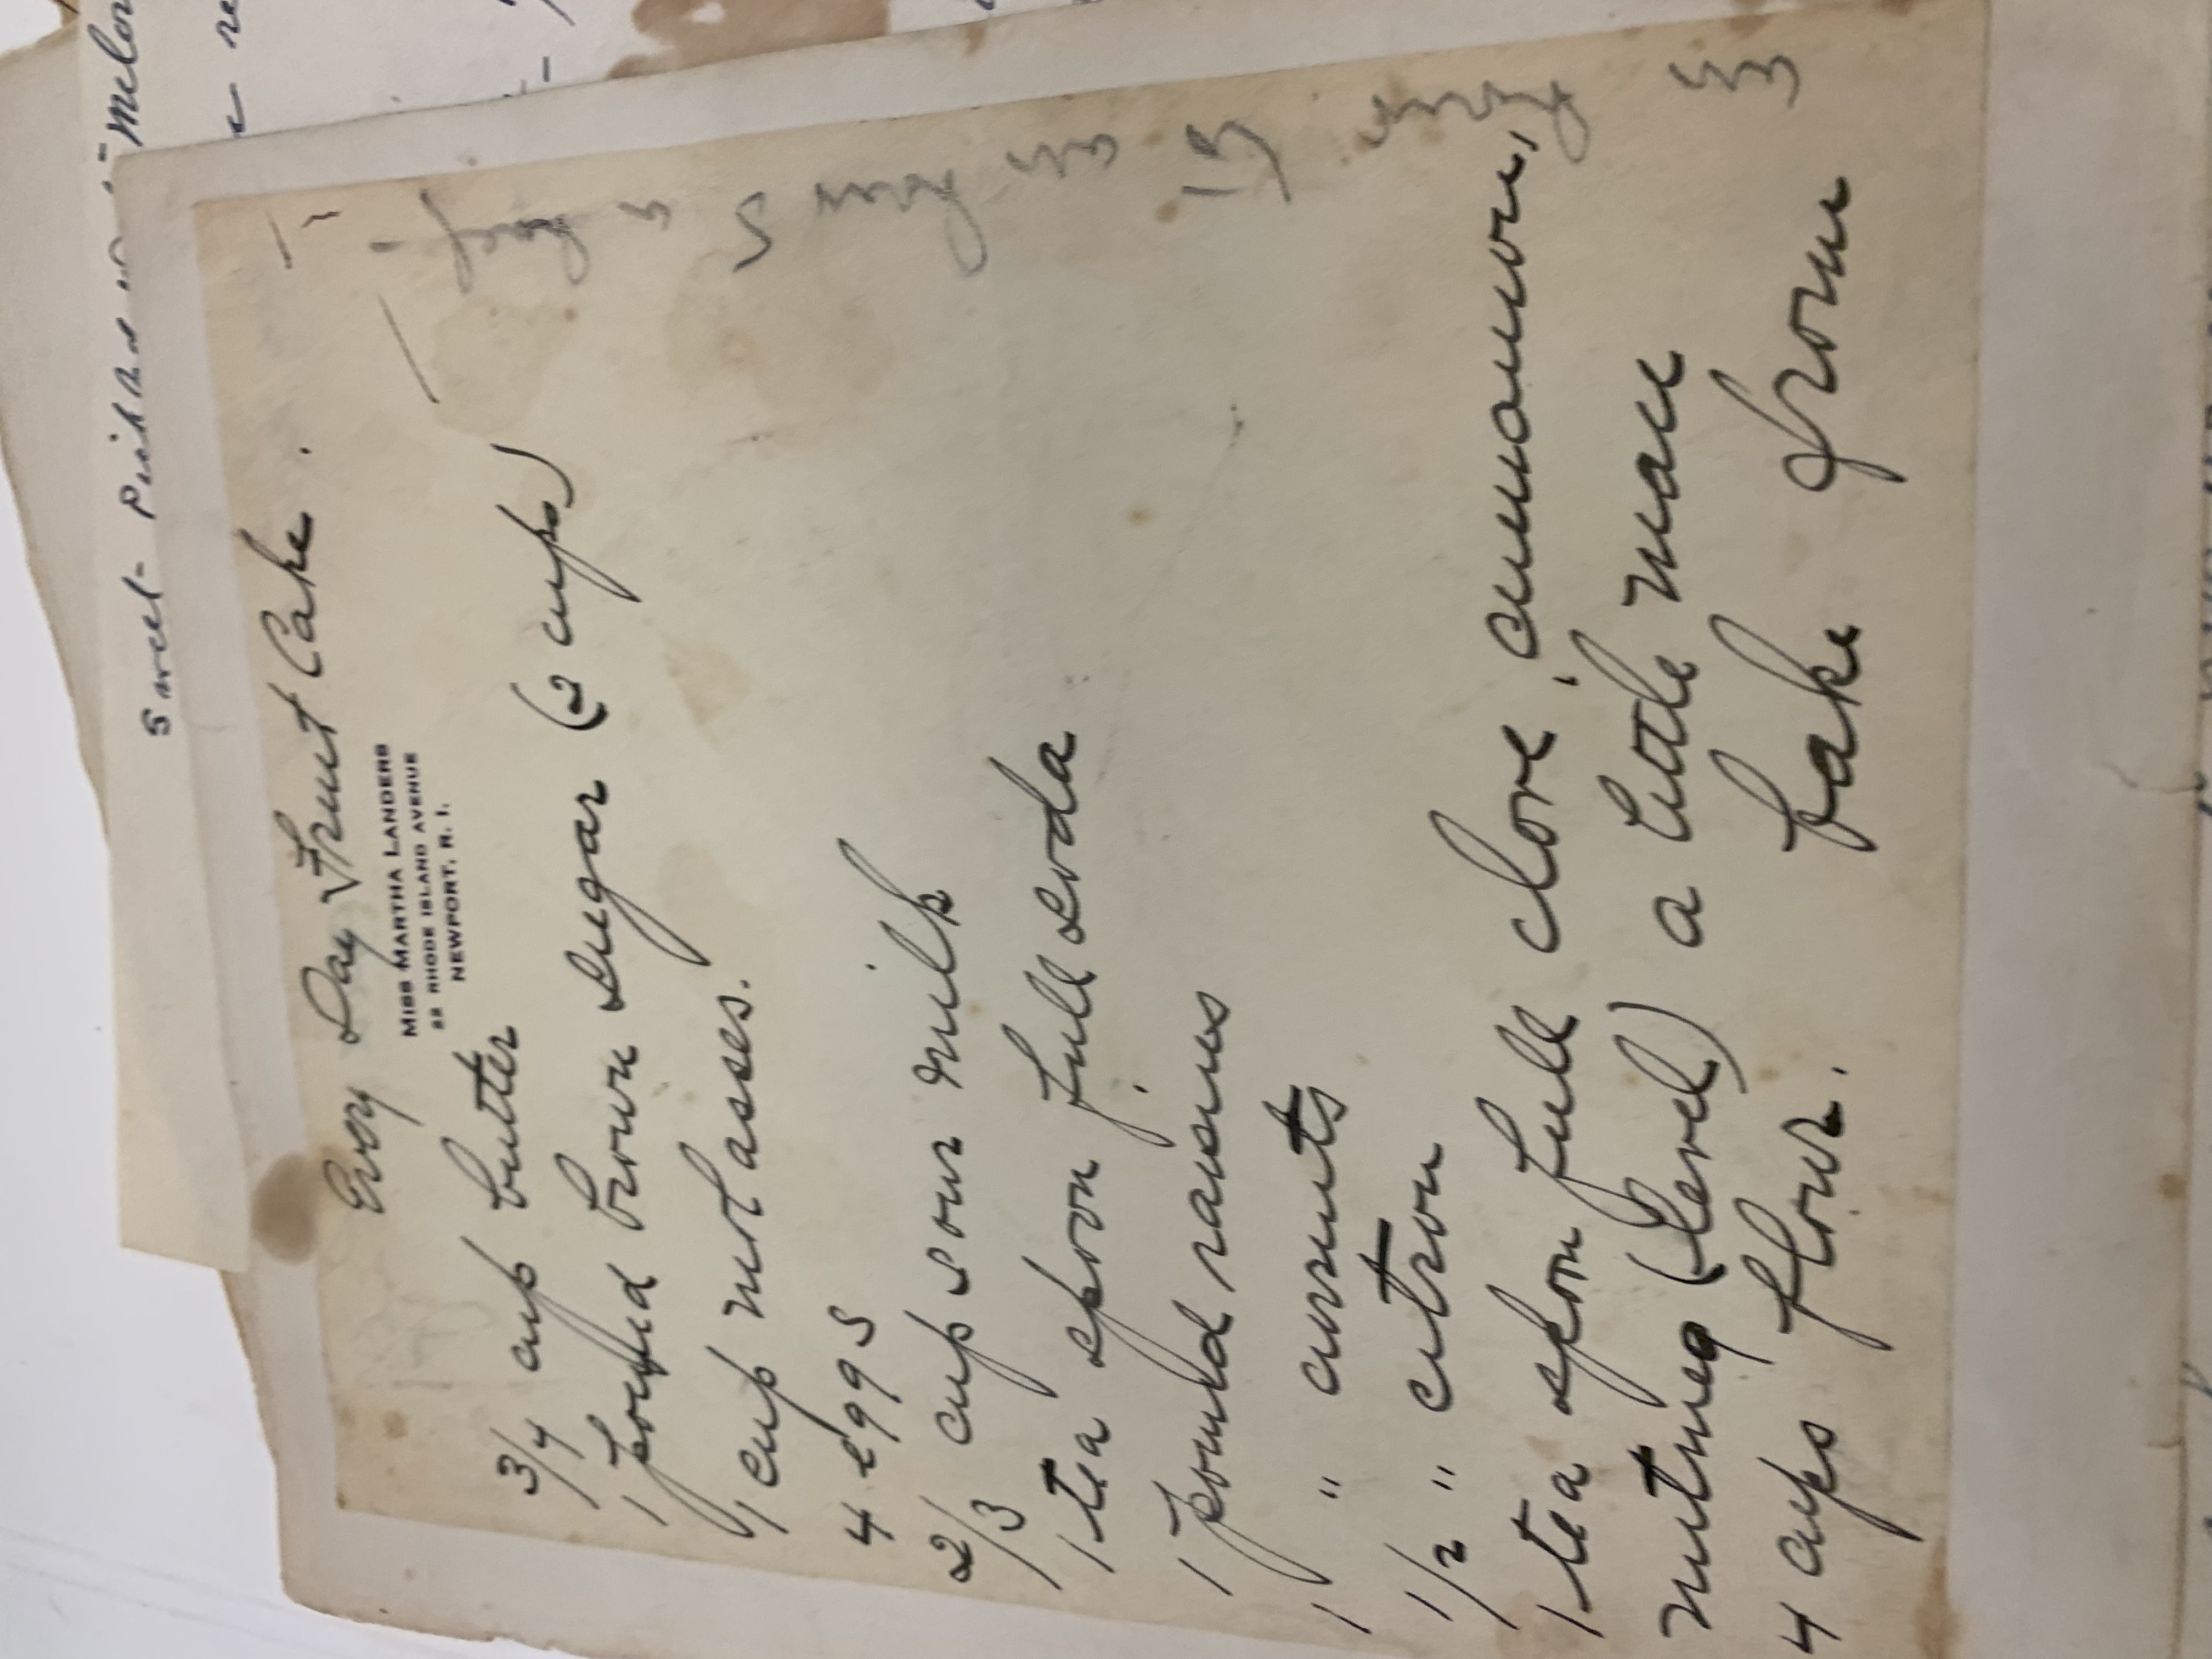 Sweet Melon
re
Every Day Fruit Cake.
MISS MARTHA LANDERS
22 RHODE ISLAND AVENUE
NEWPORT, R. I.
3/4 cup butter
1 pound brown sugar (2 cups)
1 cup molasses.
4 eggs
2/3 cup sour milk
1 tea spoon full soda
1 pound raisins
1 " currents
1/2 " citron
1 tea spoon full clove, cinnamon,
nutmeg (level) a little mace
4 cups flour. bake from